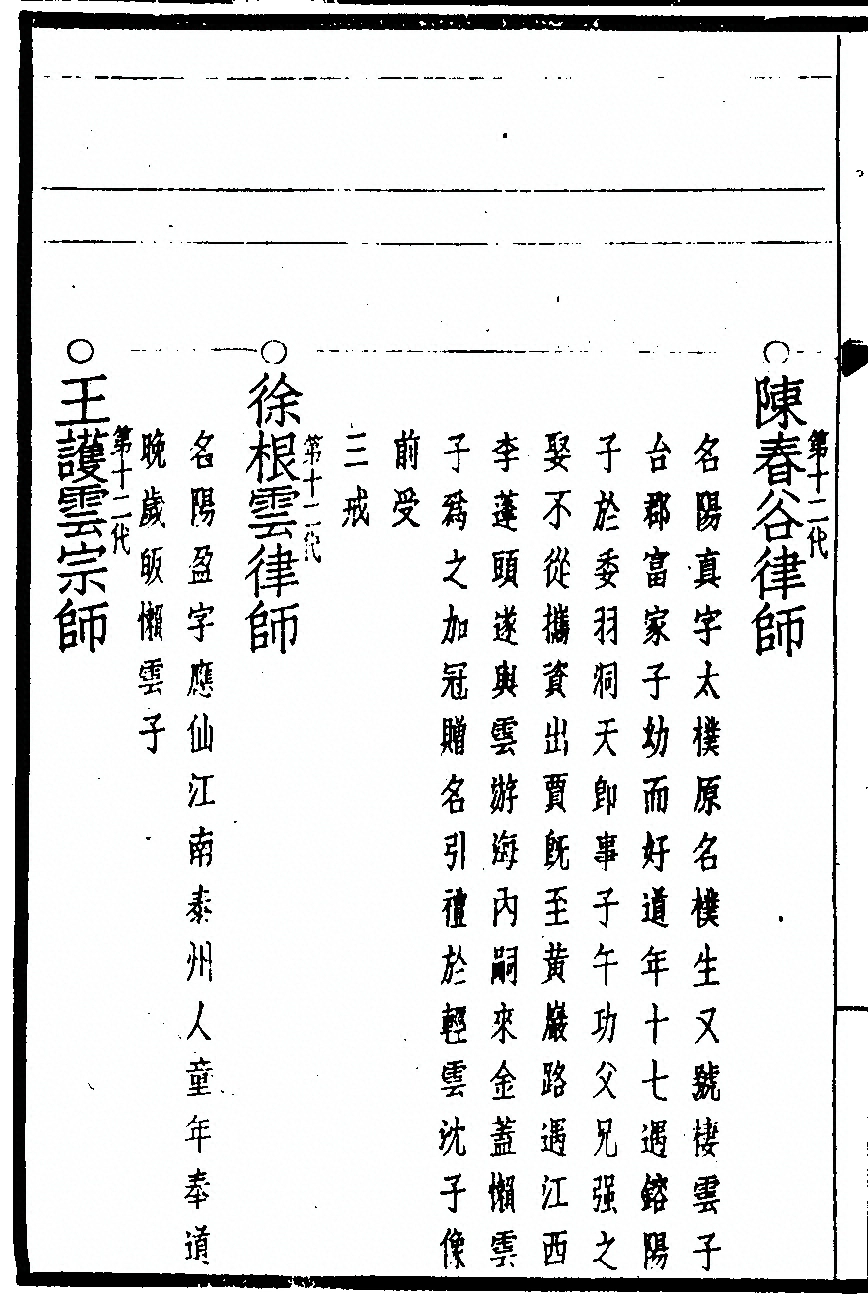 陳春谷律師
第十二代
名陽真字太樸原名樸生又號棲雲子
台郡富家子幼而好道年十七遇鎔陽
子於委羽洞天即事子午功父兄强之
娶不從攜資出賈旣至黃巖路遇江西
李蓬頭遂與雲游海內嗣來金蓋懶雲
子爲之加冠贈名引禮於輕雲沈子像
前受
三戒
徐根雲律師
第十二代
名陽盈字應仙江南泰州人童年奉道
晚歲皈懶雲子
王護雲宗師
第十二代